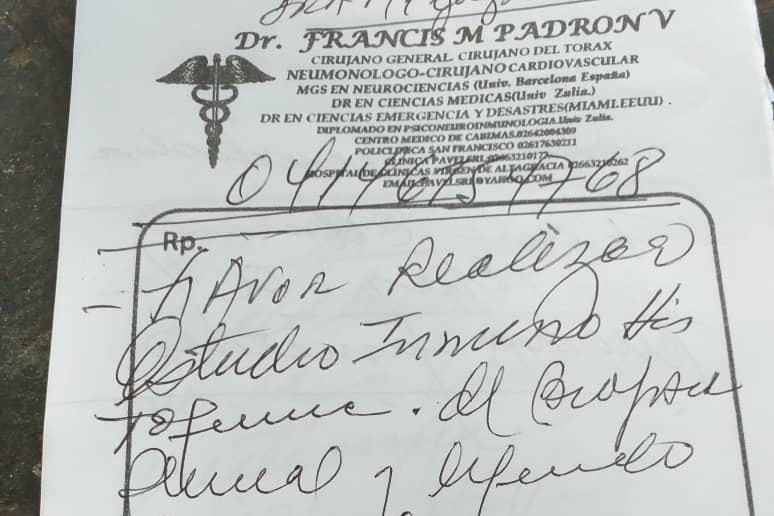 Dr. FRANCIS M PADRON V
CIRUJANO GENERAL. CIRUJANO DEL TORAX
NEUMONOLOGO-CIRUJANO CARDIOVASCULAR
MGS EN NEUROCIENCIAS (Univ. Barcelona España)
DR EN CIENCIAS MEDICAS(Univ Zulia.)
DR EN CIENCIAS EMERGENCIA Y DESASTRES(MIAMI.EEUU) .
DIPLOMADO EN PSICONEUROINMUNOLOGIA.Univ Zulia.
CENTRO MEDICO DE CABIMAS.02642004309
POLICLINICA SAN FRANCISCO 02617630231
CLINICA PAVELSRL
HOSPITAL DE CLINICAS VIRGEN DE ALTAGRACIA 02663210262
EMAIL:PAVELSRL@YAHOO.COM
Rp.
- FAVOR Realizar
Estudio Inmuno His
Del
y